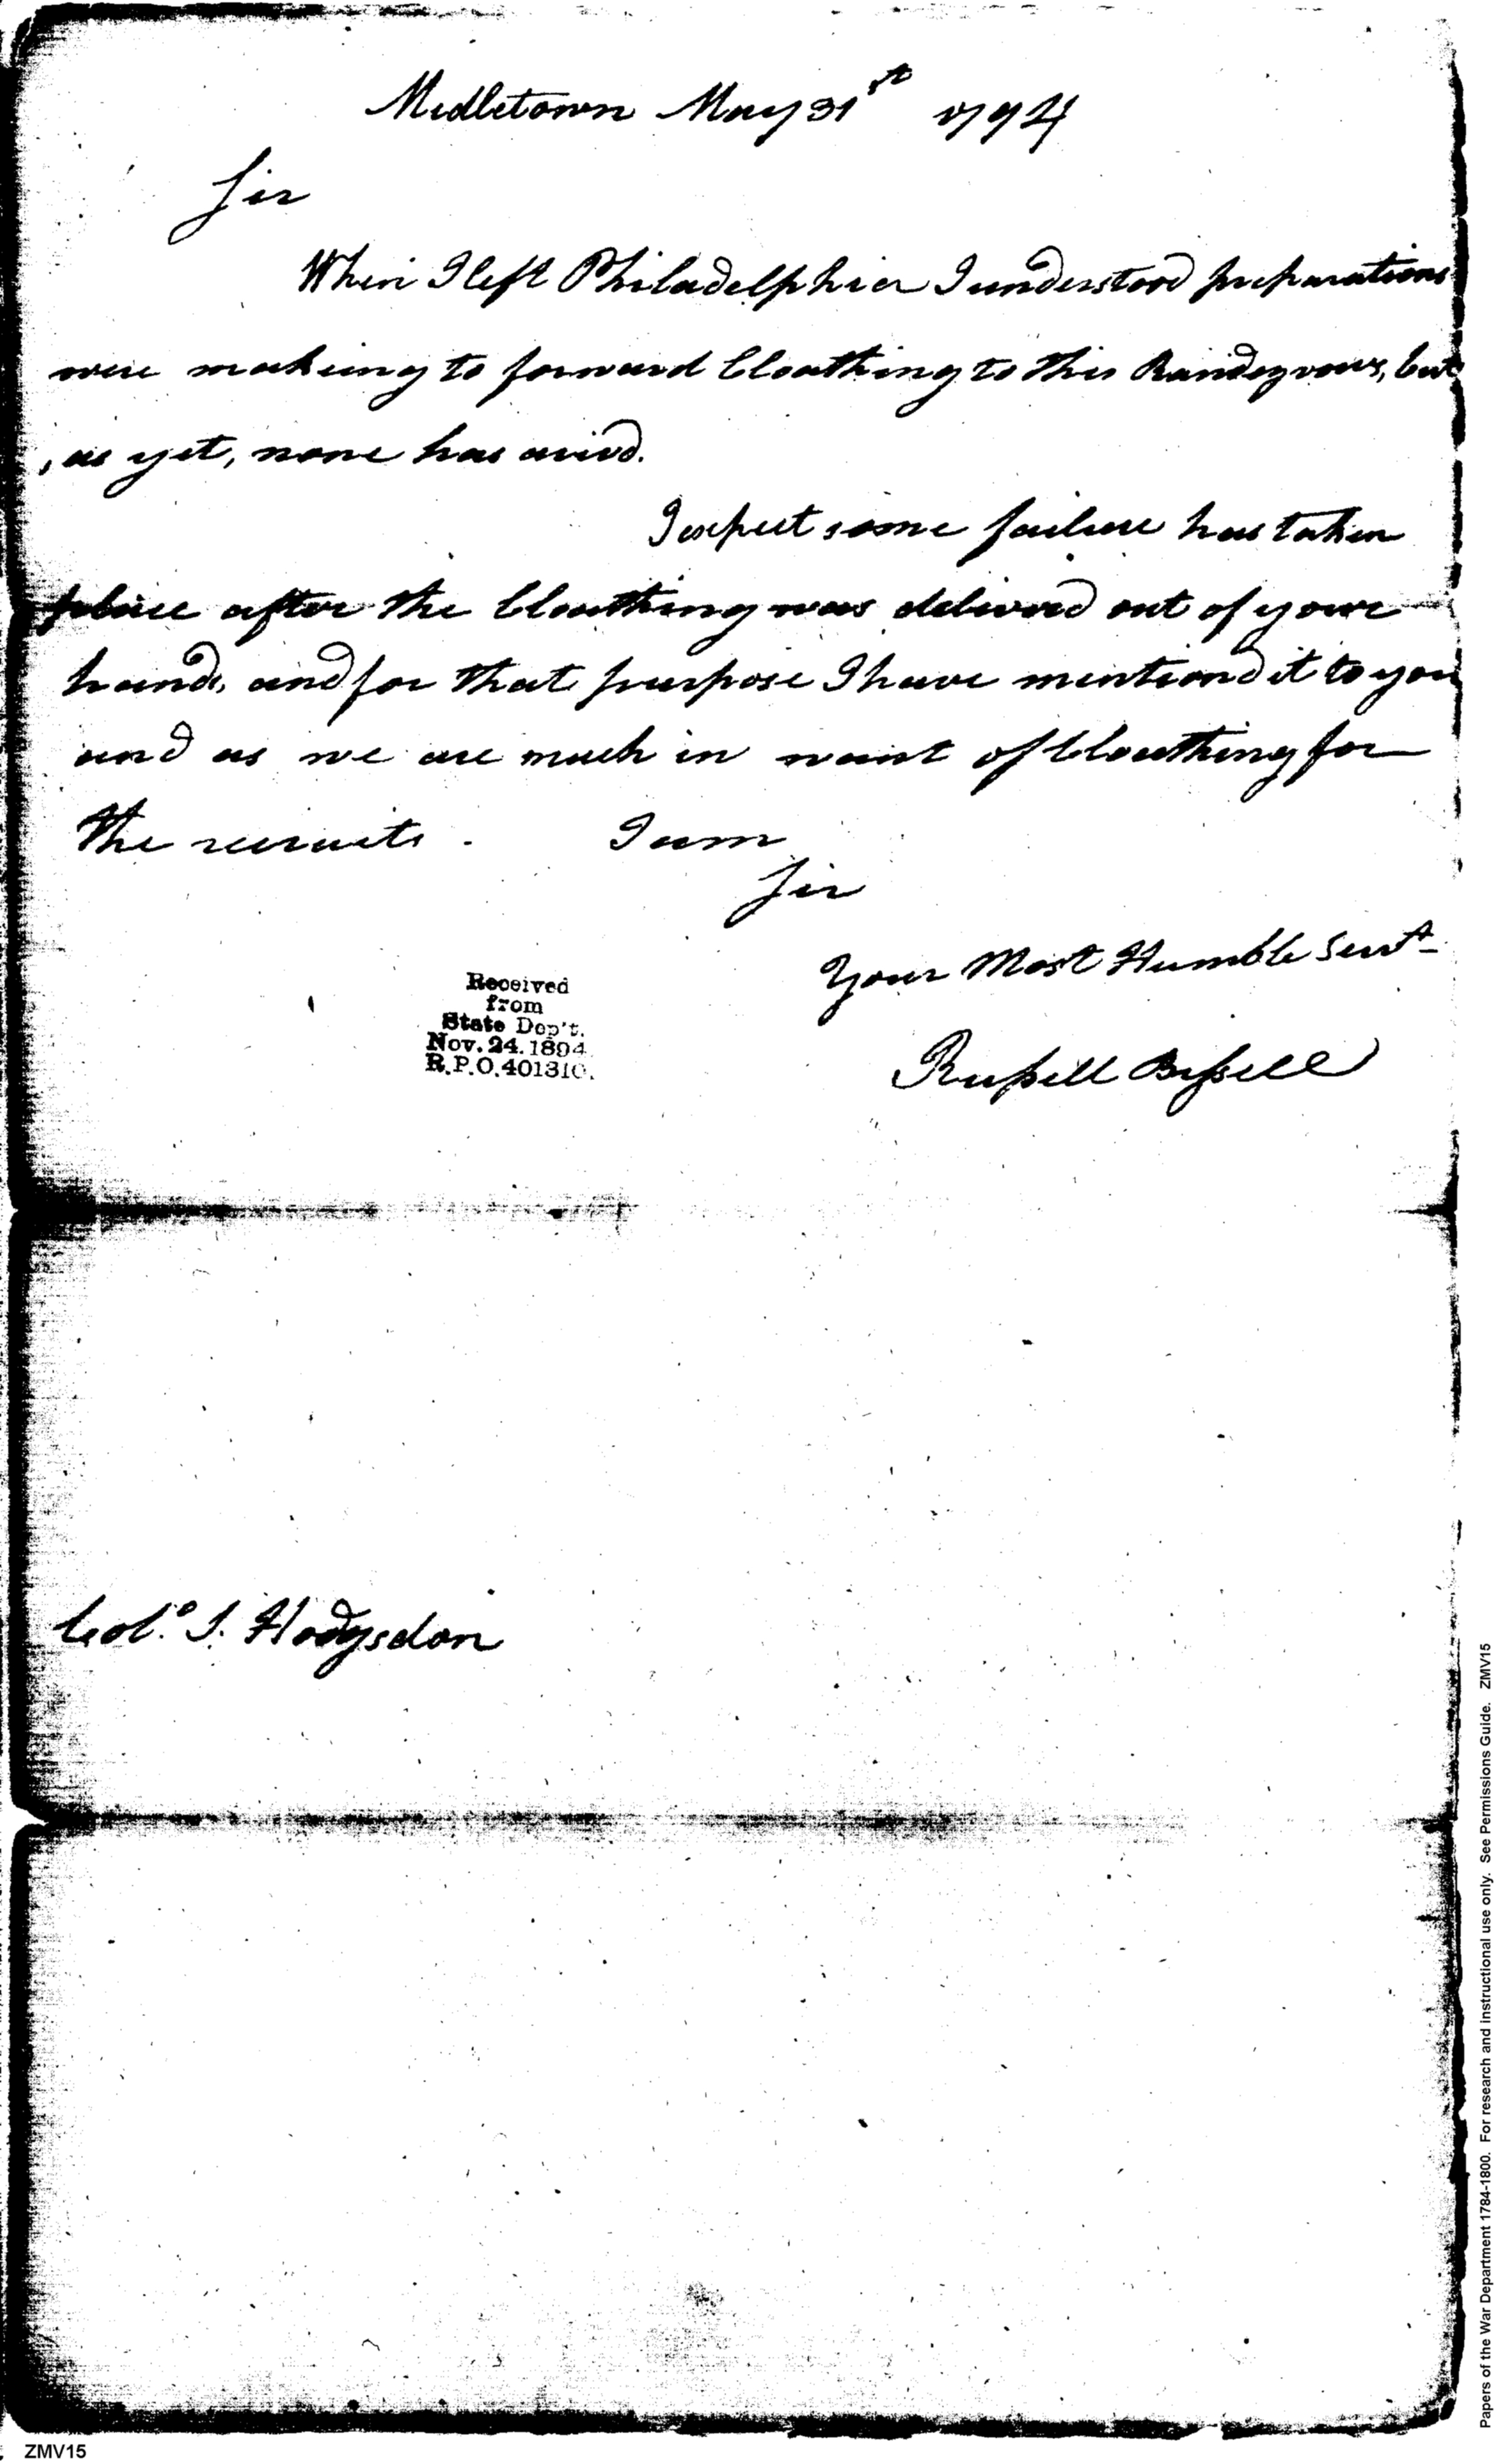 Midletown May 31st 1794
Sir
When I left Philadelphia I understood preparations
were makeing to forward Cloathing to this Randezvous, but
, as yet, none has arivd.
I expect some failure has taken
place after the Cloathing was deliverd out of your
hands, and for that purpose I have mentiond it to you
and as we are much in want of Cloathing for
the recruits. I am
Sir
Your Most Humble Servt
Russell Bissell
Received
from
State Dep't.
Nov. 24. 1894
R.P.O. 401310.
Colo. S. Hodgsdon
Papers of the War Department 1784-1800. For research and instructional use only. See Permissions Guide. ZMV15
ZMV15